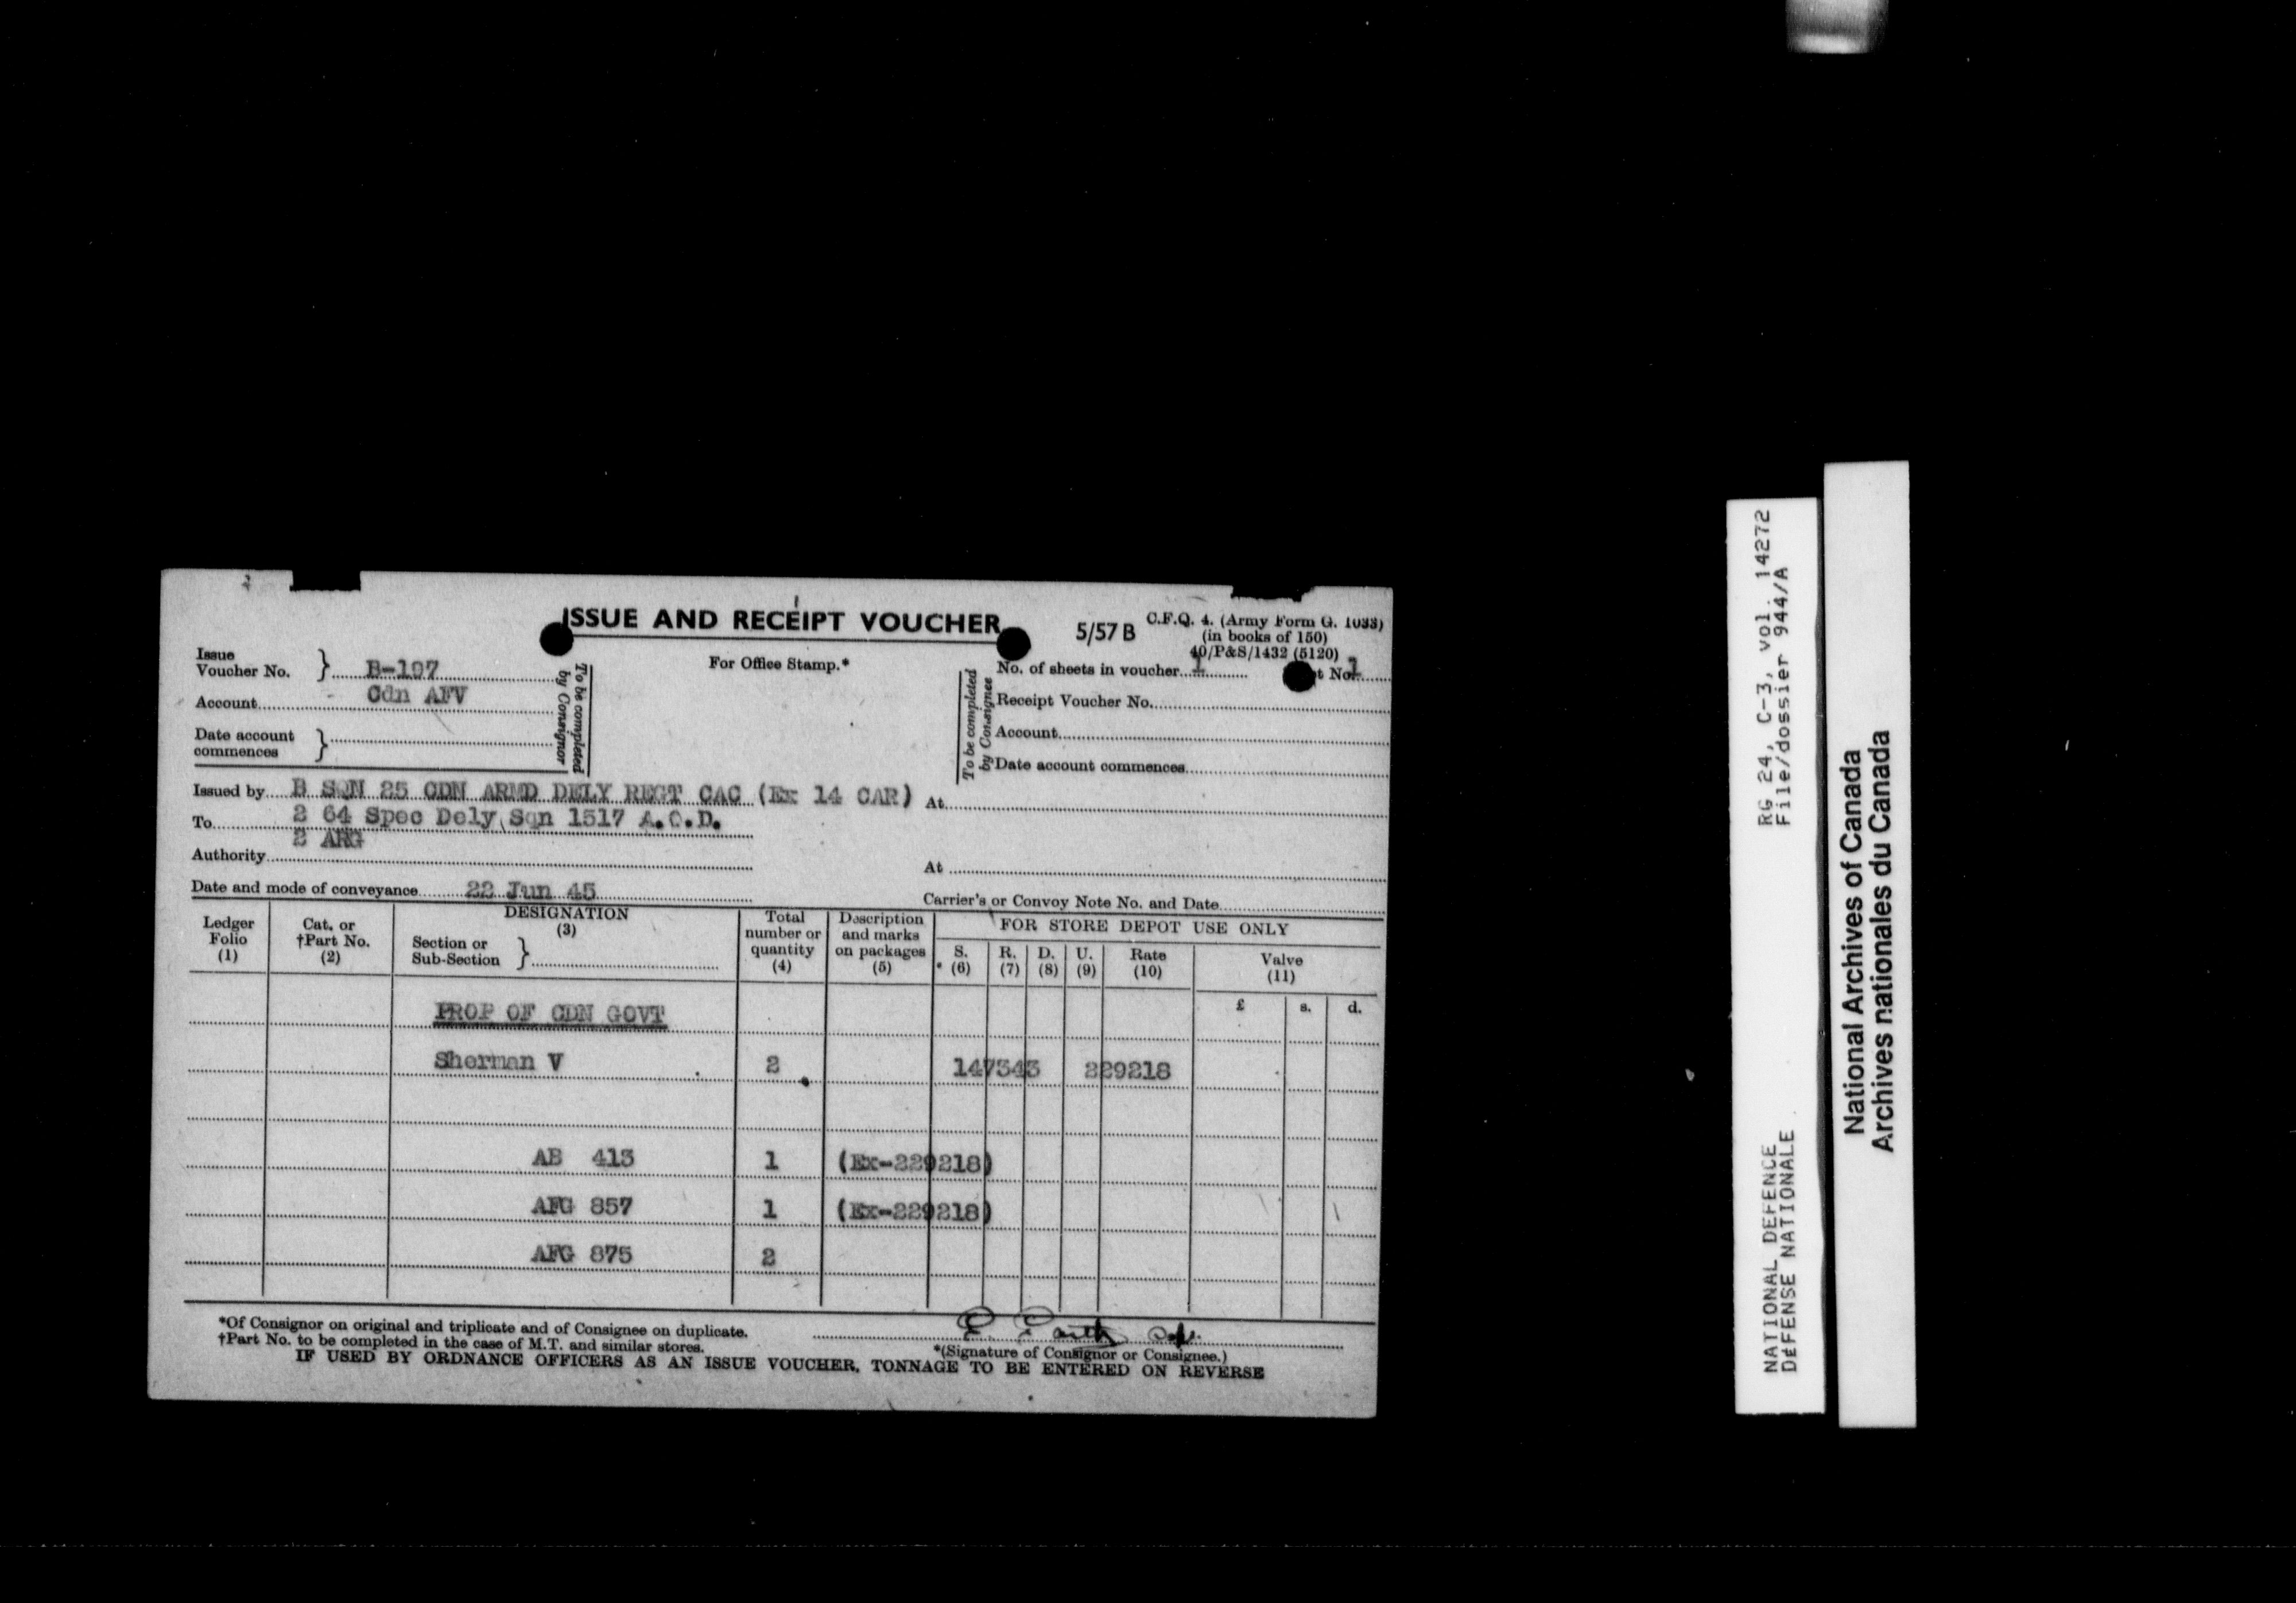 ISSUE AND RECEIPT VOUCHER
5/57 B
C.F.Q. 4. (Army Form G. 1033)
(in books of 150)
40/P&S/1432 (5120)
Issue
Voucher No. } B-197
Account Cdn AFV
Date account
commences }
To be completed
by Consignor
For Office Stamp.*
To be completed
by Consignee
No. of sheets in voucher 1 t No. 1
Receipt Voucher No.
Account
Date account commences
Issued by B SQN 25 CDN ARMD DELY REGT CAC (Ex 14 CAR) At
To 2 64 Spec Dely Sqn 1517 A.O.D.
2 ARG
Authority At
Date and mode of conveyance 22 Jun 45
Carrier's or Convoy Note No. and Date
Ledger Folio (1)
Cat. or †Part No. (2)
DESIGNATION (3)
Section or Sub-Section }
Total number or quantity (4)
Description and marks on packages (5)
FOR STORE DEPOT USE ONLY
S. (6) R. (7) D. (8) U. (9) Rate (10) Valve (11)
£ s. d.
PROP OF CDN GOVT
Sherman V 2 147343 229218
AB 413 1 (Ex-229218)
AFG 857 1 (Ex-229218)
AFG 875 2
*Of Consignor on original and triplicate and of Consignee on duplicate.
†Part No. to be completed in the case of M.T. and similar stores.
*(Signature of Consignor or Consignee.)
IF USED BY ORDNANCE OFFICERS AS AN ISSUE VOUCHER, TONNAGE TO BE ENTERED ON REVERSE
RG 24, C-3, vol. 14272
File/dossier 944/A
NATIONAL DEFENCE
DÉFENSE NATIONALE
National Archives of Canada
Archives nationales du Canada